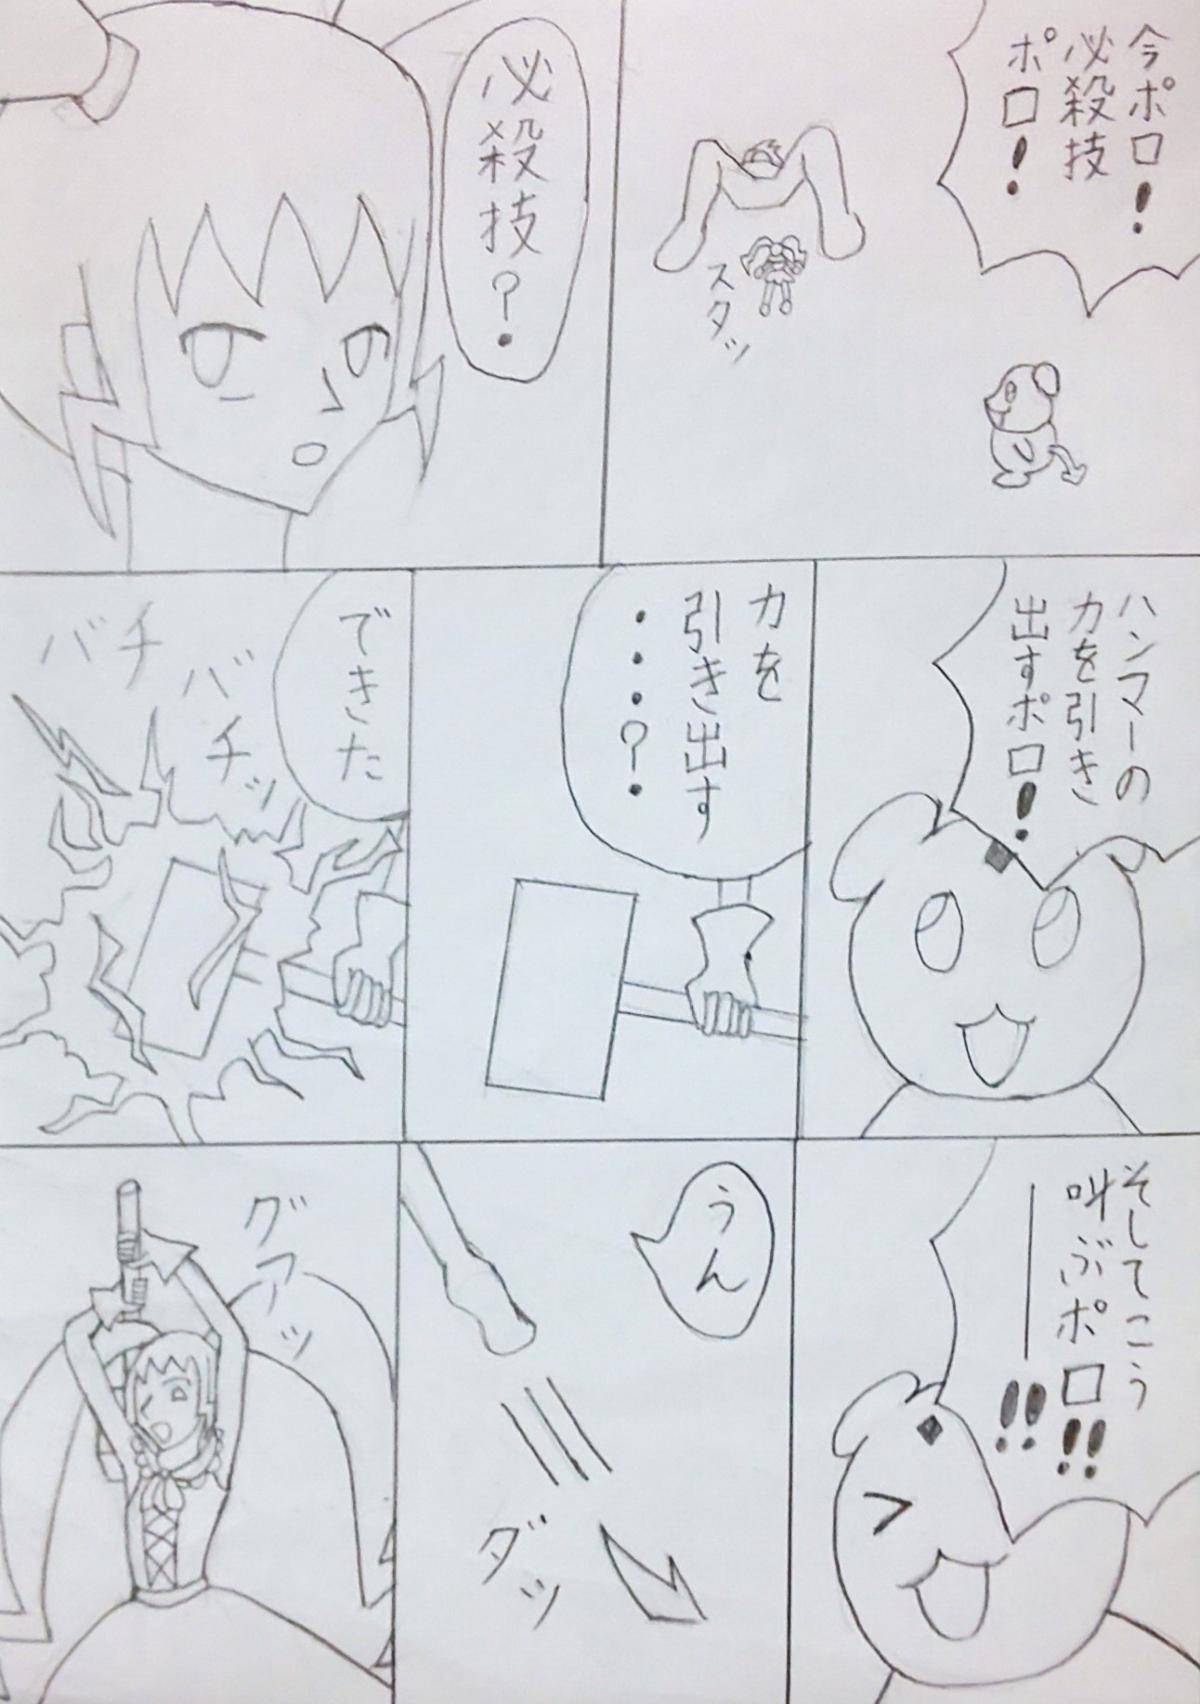 今ポロ！
必殺技
ポロ！
スタッ
必殺技？
ハンマーの
力を引き
出すポロ！
力を
引き出す
・・・？
できた
バチ
バチッ
そしてこう
叫ぶポロ!!
――!!
うん
ダッ
グアッ